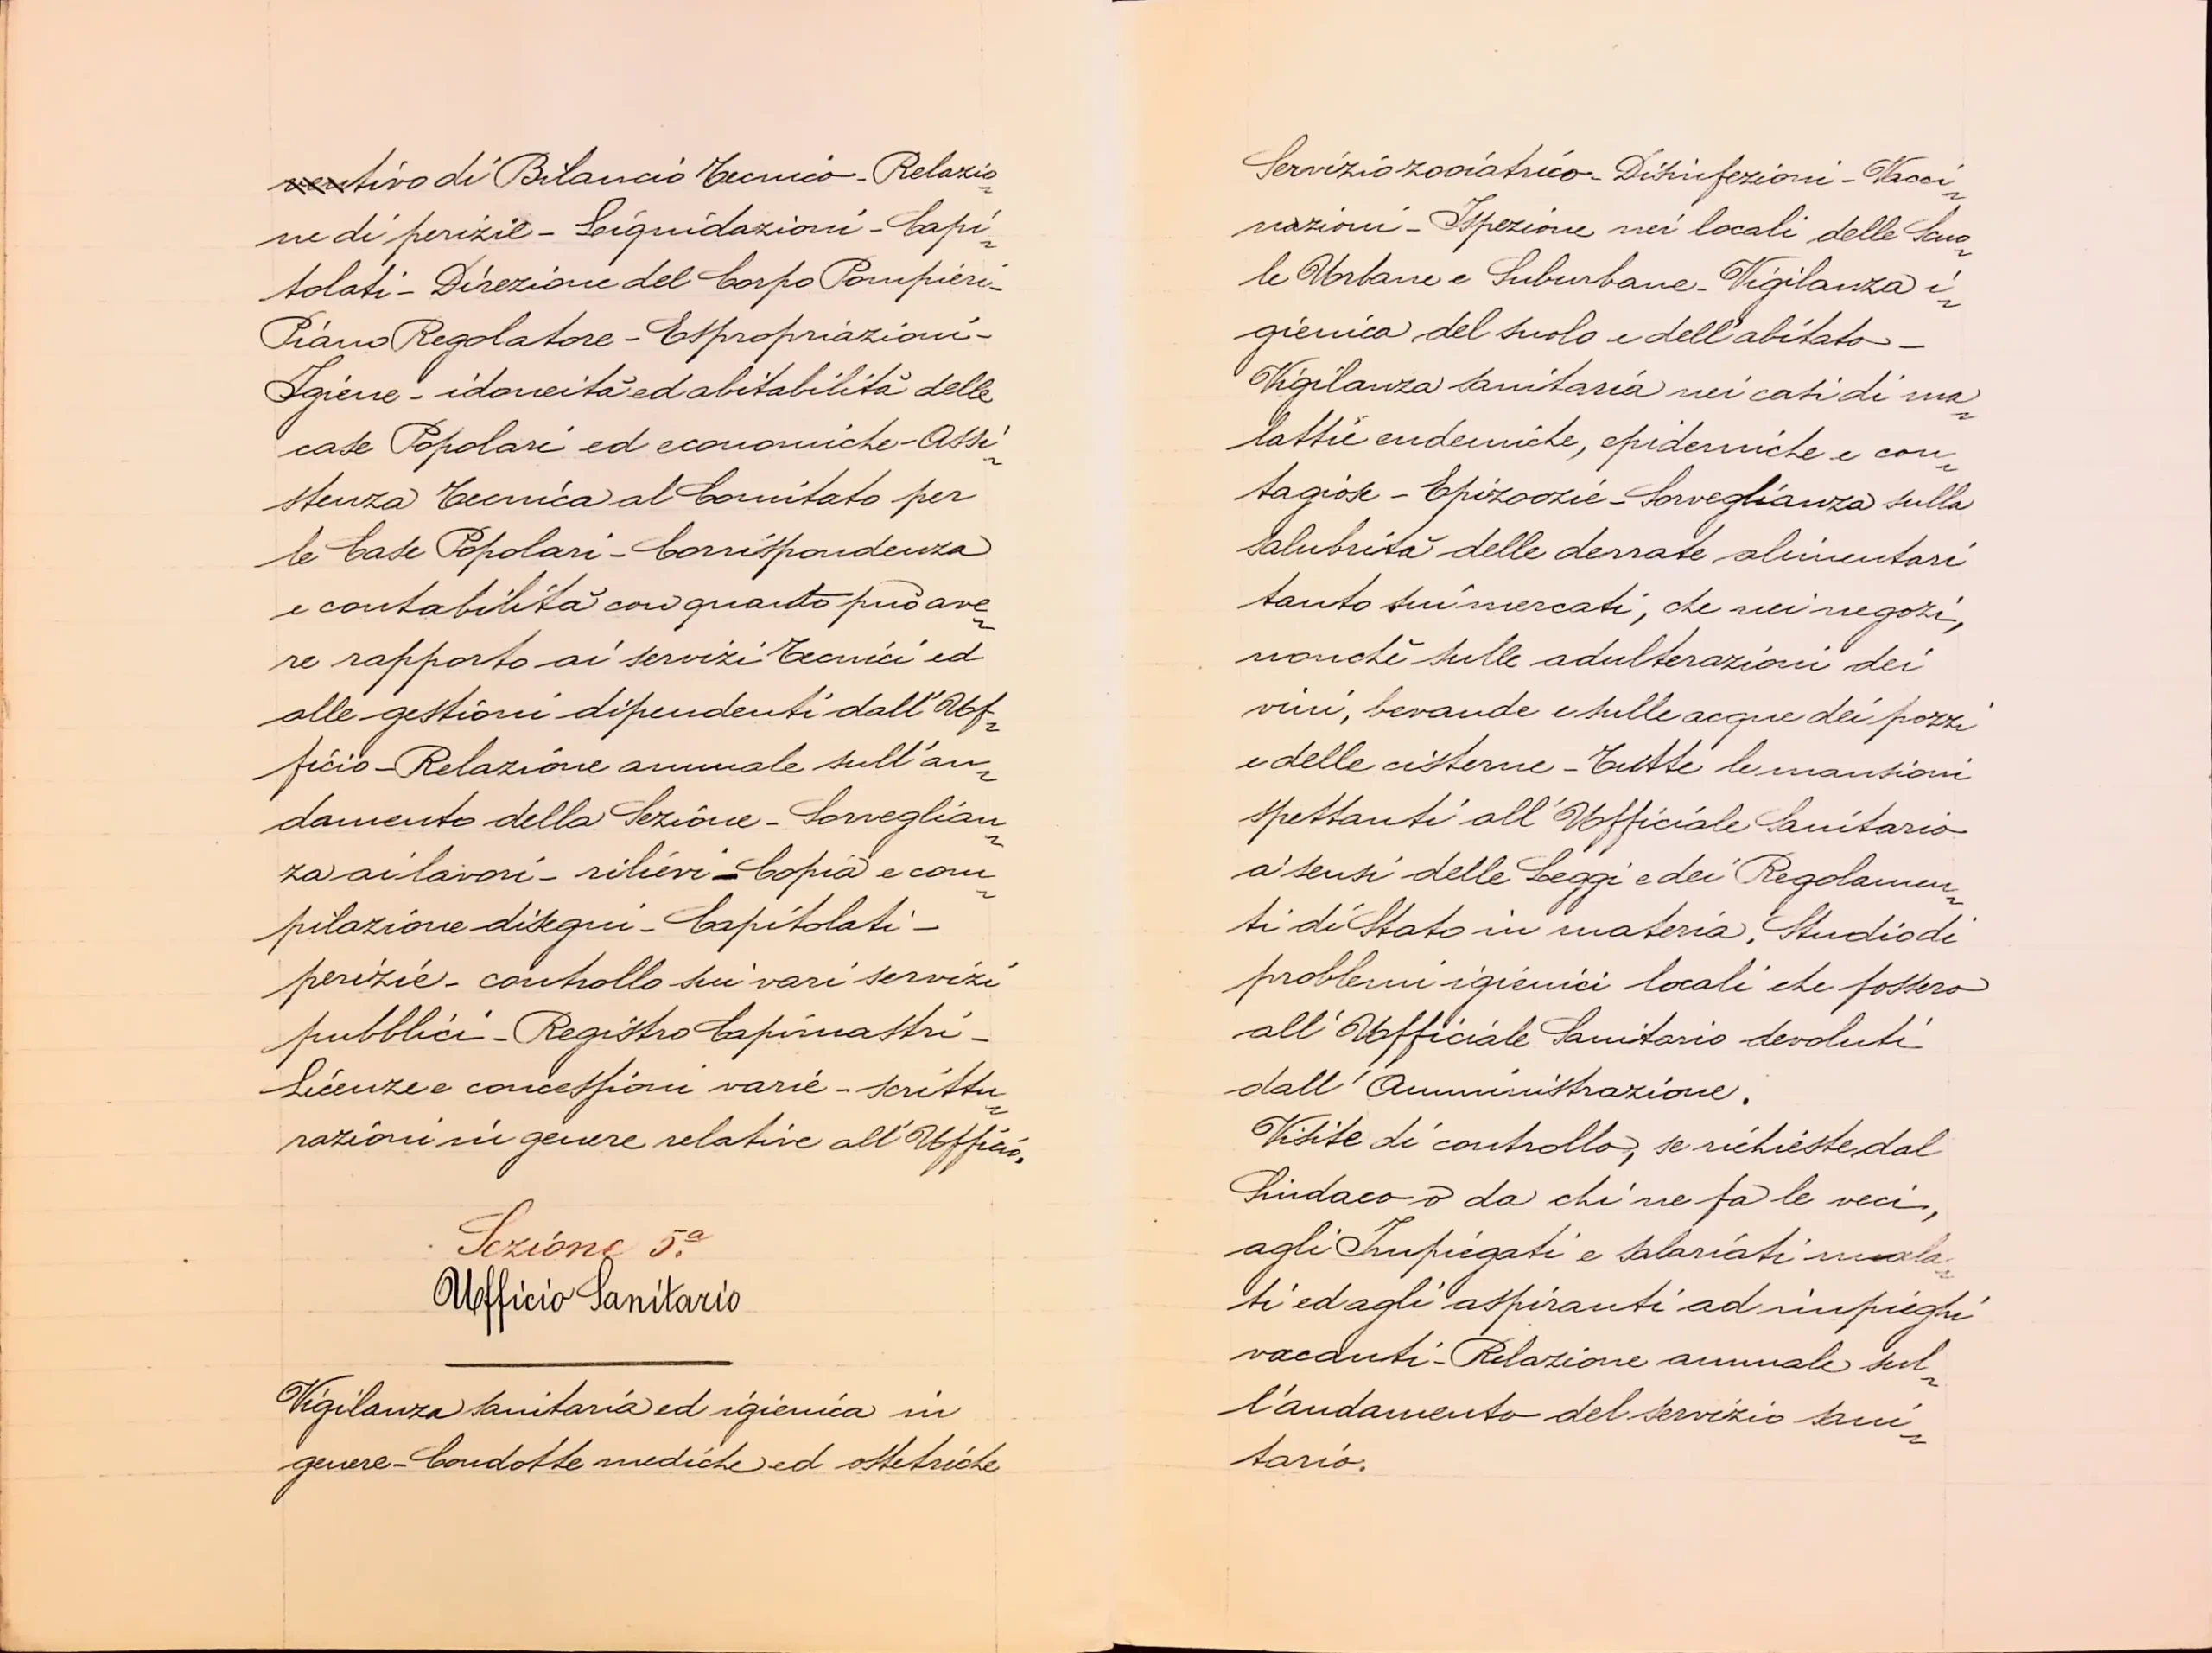 ventivo di Bilancio Tecnico - Relazio
ne di perizie - Liquidazioni - Capi
tolati - Direzione del Corpo Pompieri -
Piano Regolatore - Espropriazioni -
Igiene - idoneità ed abitabilità delle
case Popolari ed economiche - Assi
stenza Tecnica al Comitato per
le Case Popolari - Corrispondenza
e contabilità con quanto può ave
re rapporto ai servizi Tecnici ed
alle gestioni dipendenti dall'Uf
ficio - Relazione annuale sull'an
damento della Sezione - Sorveglian
za ai lavori - rilievi - Copia e com
pilazione disegni - Capitolati -
perizie - controllo sui vari servizi
pubblici - Registro Capimastri -
Licenze e concessioni varie - scrittu
razioni in genere relative all'Ufficio.
Sezione 5.ª
Ufficio Sanitario
Vigilanza sanitaria ed igienica in
genere - Condotte mediche ed ostetriche
Servizio zooiatrico - Disinfezioni - Vacci
nazioni - Ispezione nei locali delle Scuo
le Urbane e Suburbane - Vigilanza i
gienica del suolo e dell'abitato -
Vigilanza sanitaria nei casi di ma
lattie endemiche, epidemiche e con
tagiose - Epizoozie - Sorveglianza sulla
salubrità delle derrate alimentari
tanto sui mercati, che nei negozi,
nonchè sulle adulterazioni dei
vini, bevande e sulle acque dei pozzi
e delle cisterne - Tutte le mansioni
spettanti all'Ufficiale Sanitario
a' sensi delle Leggi e dei Regolamen
ti di Stato in materia. Studio di
problemi igienici locali che fossero
all'Ufficiale Sanitario devoluti
dall'Amministrazione.
Visite di controllo, se richieste, dal
Sindaco o da chi ne fa le veci,
agli Impiegati e salariati mala
ti ed agli aspiranti ad impieghi
vacanti - Relazione annuale sul
l'andamento del servizio sani
tario.